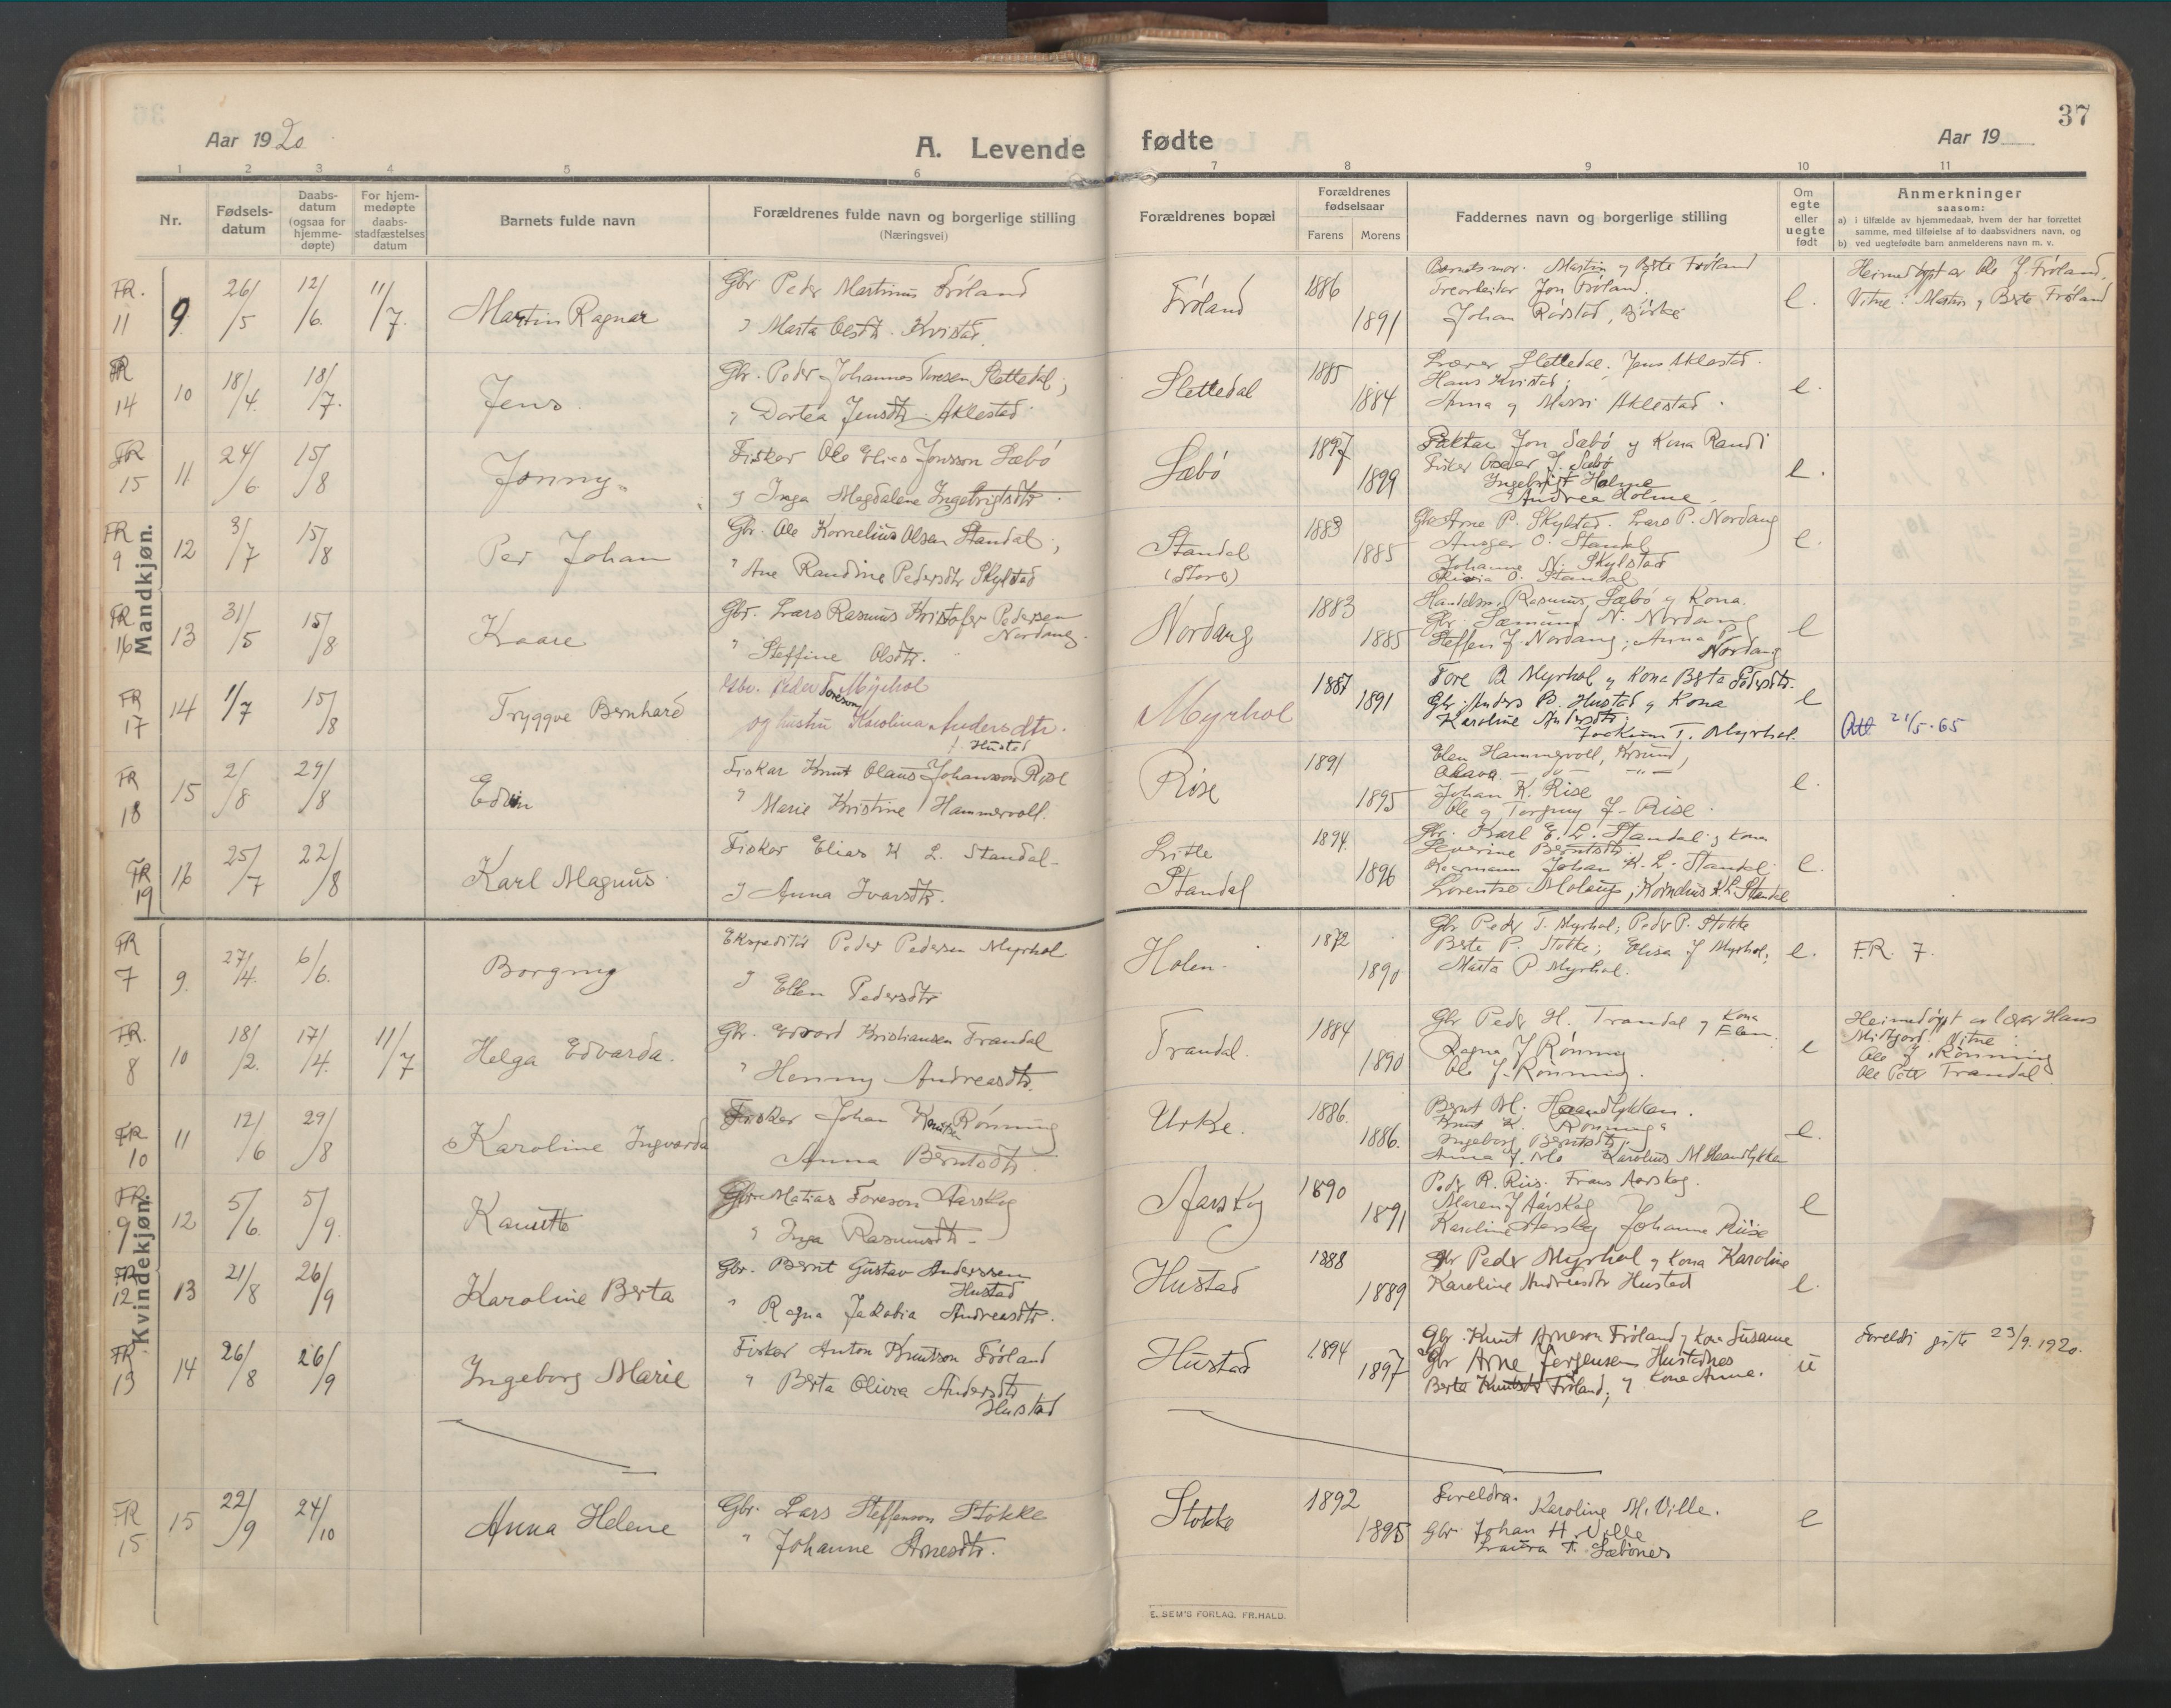 Aar 1920
A. Levende
1 2 3 4 5 6
Nr.
Fødsels-datum
Daabs-datum (ogsaa for hjemme-døpte)
For hjem-medøpte daabs-stadfæstelses datum
Barnets fulde navn
Forældrenes fulde navn og borgerlige stilling
(Næringsvei)
Mandkjøn.
FR. 11 9 26/5 12/6 11/7. Martin Ragnar Gbr Peder Martinus Fröland
Marta Olsdtr. Kvistad.
FR 14 10 18/4. 18/7. Jens Gbr. Peder Johannes Toresen Slettedal,
" Dortea Jensdtr Aklestad.
FR 15 11 24/6 15/8 Jonny Fisker Ole Elias Jonsson Sæbö
og Inga Magdalene Ingebrigtsdtr
FR 9 12 3/7 15/8 Per Johan Gbr. Ole Kornelius Olsen Standal,
" Ane Randine Pedersdtr Skylstad
FR 16 13 31/5 15/8 Kaare Gbr. Lars Rasmus Kristofer Pedersen
Nordang.
" Steffine Olsdtr.
FR 17 14 1/7 15/8 Tryggve Bernhard Gbr. Peder Toreson Myrhol
og hustru Karolina Andersdtr.
f. Hustad
FR 18 15 2/8 29/8 Edvin Fiskar Knut Olaus Johansson Rise
" Marie Kristine Hammervoll.
FR 19 16 25/7 22/8 Karl Magnus Fisker Elias K L. Standal
Anna Ivarsdtr.
Kvindekjøn.
FR 7 9. 27/4. 6/6. Borgny Ekspeditör Peder Pedersen Myrhol
Ellen Pedersdtr
FR. 8 10 18/2. 17/4. 11/7 Helga Edvarda. Gbr. Edvard Kristiansen Trandal
" Henny Andreasdtr.
FR 10 11 12/6 29/8 Karoline Ingvarda Fisker Johan Knutsen Rönning
Anna Berntsdtr.
FR 9 12 5/6. 5/9. Kanutte Gbr Matias Toreson Aarskog
" Inga Rasmusdtr
FR 12 13 21/8 26/9 Karoline Berta Gbr. Bernt Gustav Anderssen
Hustad
" Ragna Jakobia Andreasdtr.
FR 13 14 26/8 26/9 Ingeborg Marie Fisker Anton Knutson Fröland
" Berta Olivia Andersdtr
Hustad
FR 15 15 22/9 24/10 Anna Helene Gbr. Lars Steffenson Stokke
" Johanne Arnesdtr.
37
fødte
Aar 19
7 8 9 10 11
Forældrenes bopæl
Forældrenes fødselsaar
Farens Morens
Faddernes navn og borgerlige stilling
Om egte eller uegte født
Anmerkninger
saasom:
a) i tilfælde av hjemmedaab, hvem der har forrettet
samme, med tilføielse af to daabsvidners navn, og
b) ved uegtefødte barn anmelderens navn m. v.
Fröland 1886 1891 Barnets mor. Martin og Berte Fröland
Trearbeider Jon Fröland.
Johan Rörstad, Björke
e.
Heimedöypt av Ole J. Fröland.
Vitne: Martin og Berte Fröland
Slettedal 1885 1884 Lærer Slettedal. Jens Aklestad.
Hans Kvistad,
Anna og Massi Aklestad.
e.
Sæbö 1897 1899 Faktar Jon Sæbö og Kona Randi
Fisker Oscar J. Sæbö
Ingebrigt Holme
Andrea Holme.
e.
Standal
(Store)
1883 1885 Gbr Arne P. Skylstad. Lars P. Nordang
Ansgar O. Standal
Johanne N. Skylstad
Olivia O. Standal
e.
Nordang 1883 1885 Handelsm. Rasmus Sæbö og Kona.
Gbr. Sæmund N. Nordang
Steffen J. Nordang; Anna P.
Nordang
e
Myrhol 1887 1891 Tore B Myrhol og Kona Berta Pedersdtr.
Gbr. Anders B. Hustad og Kona
Karoline Andersdtr;
Joakim T. Myrhol.
e
Att 21/5-65
Rise 1891 1895 Elen Hammervoll,
Olava
Johan K. Rise
Ole og Torgny J. Rise.
e.
Litle
Standal
1894. 1896 Gbr. Karl E. L. Standal og Kona
Severine Berntsdtr.
Johan K. L. Standal.
Lorentse Molaup, Kornelius K L. Standal
e.
Holen. 1872 1890 Gbr Peder T. Myrhol, Peder P. Stokke
Berte P. Stokke; Elisa J Myrhol,
Marta P Myrhol.
e.
F.R. 7.
Trandal. 1884 1890 Gbr Peder H. Trandal og Kona
Elen.
Ragna J Rönning
Ole J. Rönning.
e
Heimedöypt av lærer Hans
Mittjord. Vitne:
Ole J. Rönning
Ole Peter Trandal.
Urke. 1886. 1886. Bernt M. Haandlykken.
Knut K. Rönning
Ingeborg Berntsdtr;
Anna J. Mo Karolius M Haandlykken
e.
Aarskog 1890 1891 Peder R. Riis. Frans Aarskog.
Maren J Aarskog
Karoline Aarskog Johanne Riise
e
Hustad 1888 1889 Gbr Peder Myrhol og Kona Karoline
Karoline Andreasdtr Hustad
e.
Hustad 1894 1897 Gbr. Knut Arneson Fröland og kone Susanne
Gbr Arne Jørgensen Hustadnes
Berte Knutsdtr Fröland; og kone Anna.
u
Foreldri gifte 23/9. 1920.
Stokke 1892 1895 Foreldra. Karoline M. Ville.
Gbr. Johan H. Ville
Laura T. Sæbönes
e
E. SEM'S FORLAG, FR.HALD.